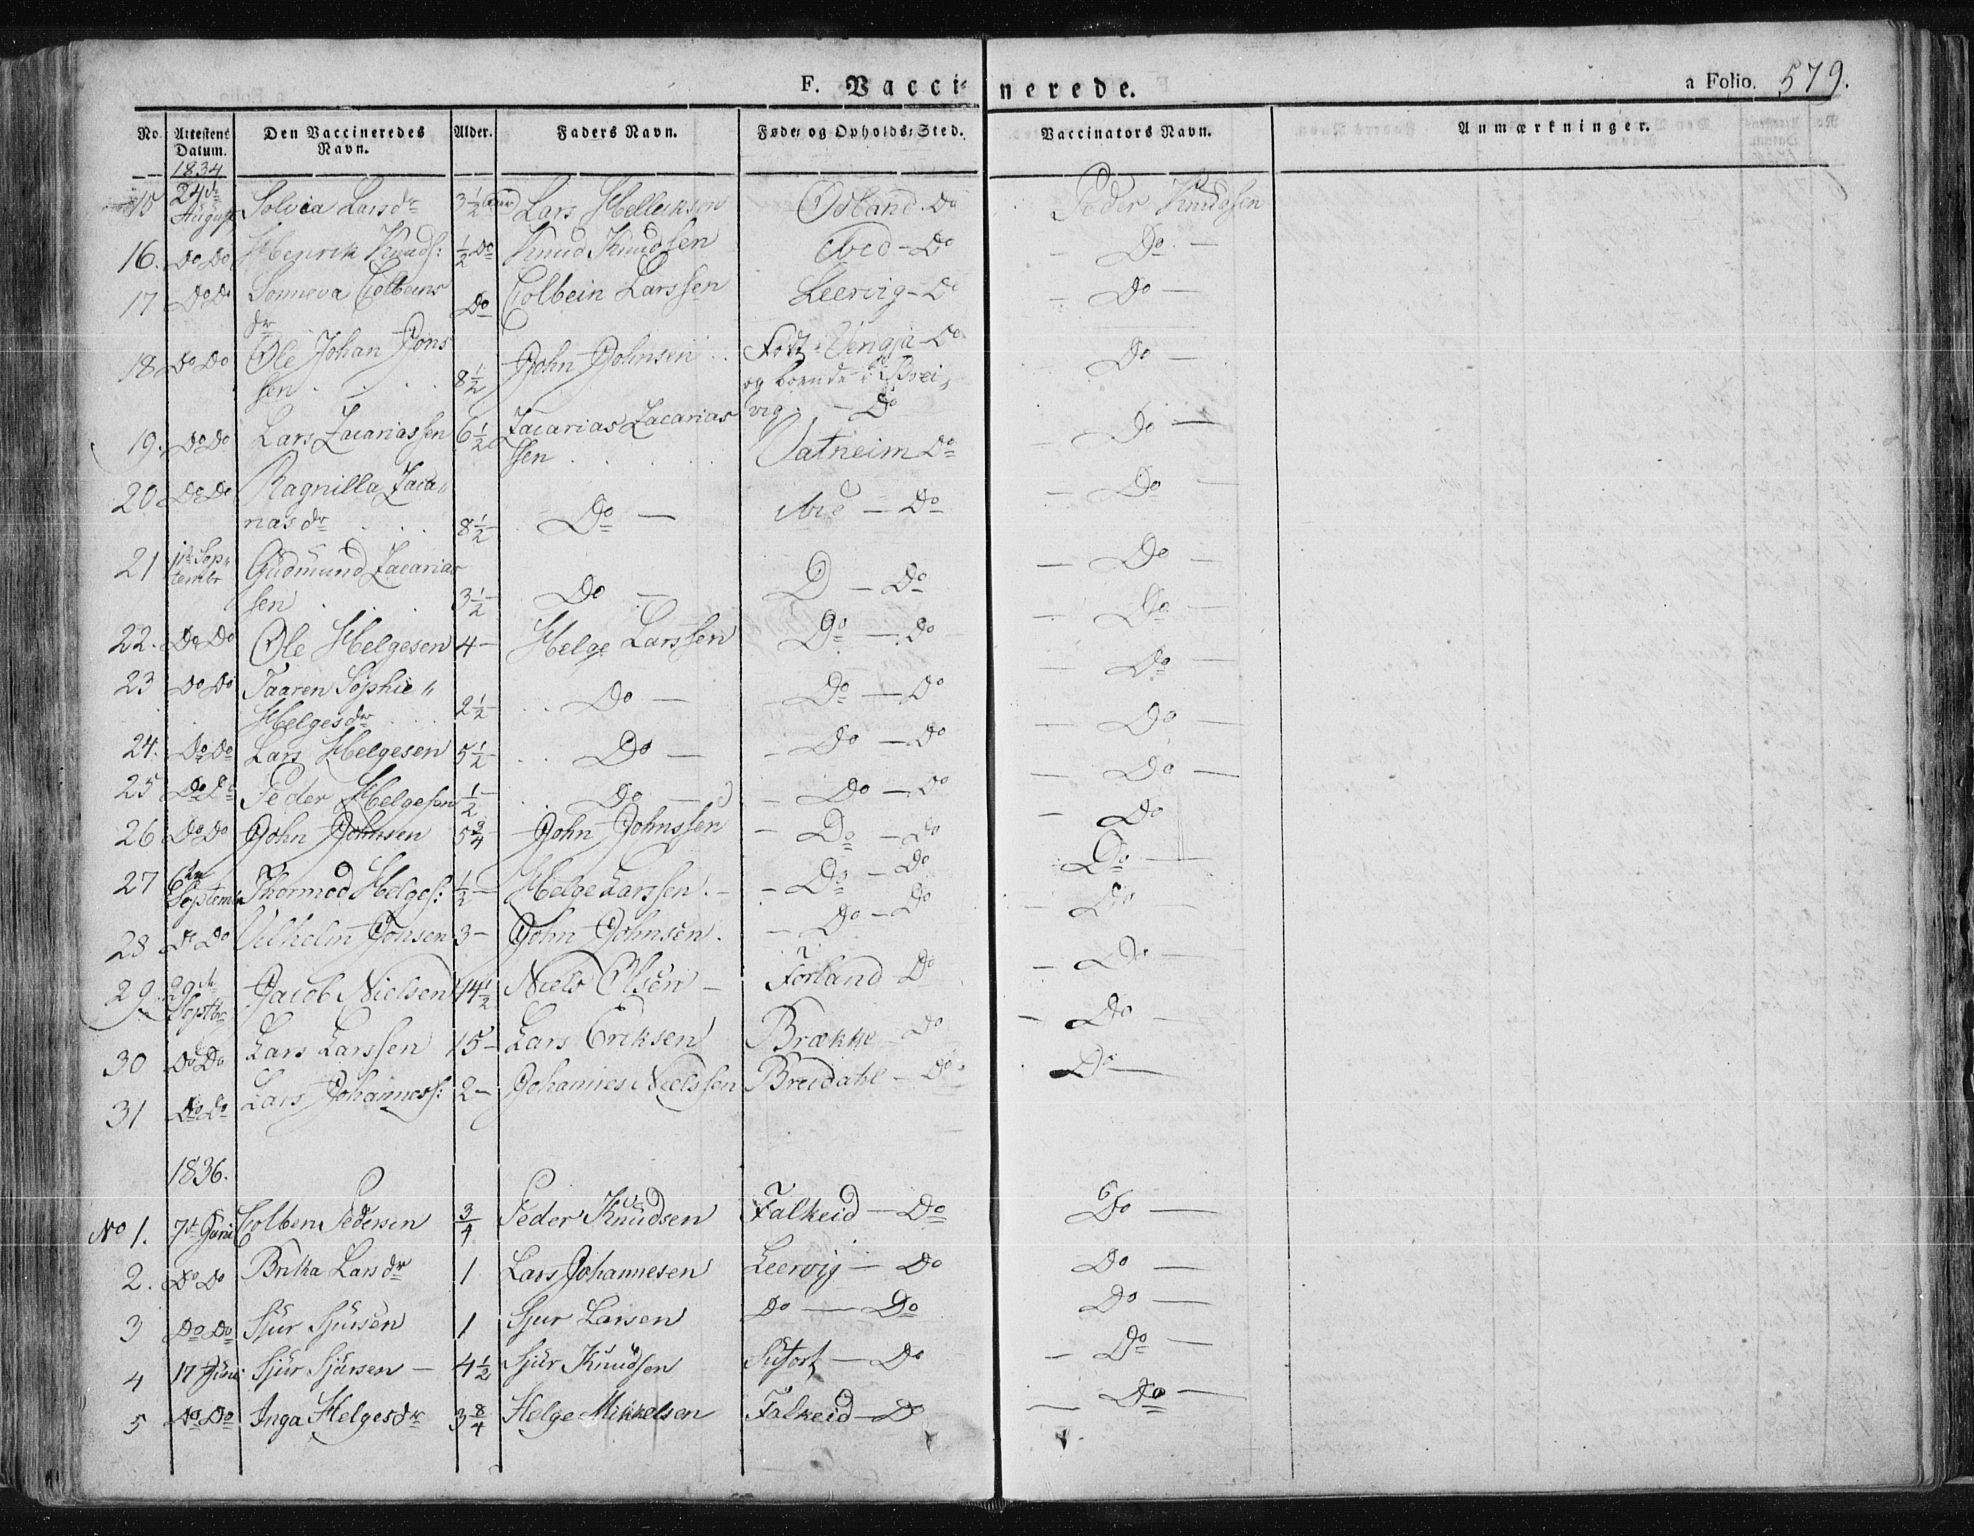 F. Vacci-nerede. a Folio. 579.
No. Attestens Datum. Den Vaccineredes Navn. Alder. Faders Navn. Føde- og Opholds-Sted. Vaccinators Navn. Anmærkninger.
1834
15 24de August Solvia Larsdr 3 1/2 Lars Hellecksen Odland Do Peder Knudssen
16. Do Do Henrik Knuds: 1/2 Do Knud Knudssen Ibid - Do Do -
17 Do Do Sonneva Colbeins Do Colbein Larssen Leervig - Do - Do -
dr
18 Do Do Ole Johan Jons 8 1/2 John Johnsen Født i Vengja - Do Do -
sen og boende i Brei,
vig. - Do
19. Do Do Lars Zacariassen 6 1/2 Zacarias Zacarias Vatneim Do - Do -
sen
20 Do Do Ragnilla Zaca" 8 1/2 Do - ibid - Do - Do -
riasdr
21 11te Sep" Gudmund Zacarias 3 1/2 - Do - D - Do - Do -
tembr sen
22. Do Do Ole Helgesen 4 - Helge Larssen Do - Do - Do -
23 Do Do Taaren Sophie " 2 1/2 - Do - - Do - Do - Do -
Helgesdr
24. Do Do Lars Helgesen 5 1/2 - Do - - Do - Do - Do -
25 Do Do Peder Helgesen 1/2 - Do - - Do - Do - Do -
26 Do Do John Johnsen 5 3/4 John Johnssen - Do - Do - Do
27 Septembr Thormod Helges: 1/2 - Helge Larssen. - - Do - Do Do -
28 Do Do Vilhelm Jonsen 3 - John Johnsen. - Do - Do - Do -
29. 29de Septbr Jacob Nielsen 14 1/2 Niels Olsen - Forland Do - Do -
30 Do Do Lars Larssen 15 - Lars Eriksen Brække - Do - Do -
31 Do Do Lars Johanness: 2 - Johannes Nielssen Breidahl - Do Do -
1836.
No 1. 7de Juni Colben Pedersen 3/4 Peder Knudsen Falkeid - Do Do -
2. Do Do Brita Larsdr 1 Lars Johannesen Leervig - Do Do -
3 Do Do Sjur Sjursen 1 Sjur Larsen Do - Do Do -
4 17 Juni Sjur Sjursen - 4 1/2 Sjur Knudsen - Do - Do -
5 Do Do Inga Helgesdr 3 8/4 Helge Mikkelsen Falkeid - Do - Do -